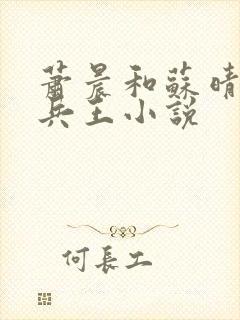 蕭晨和蘇晴
兵王小說
何長工